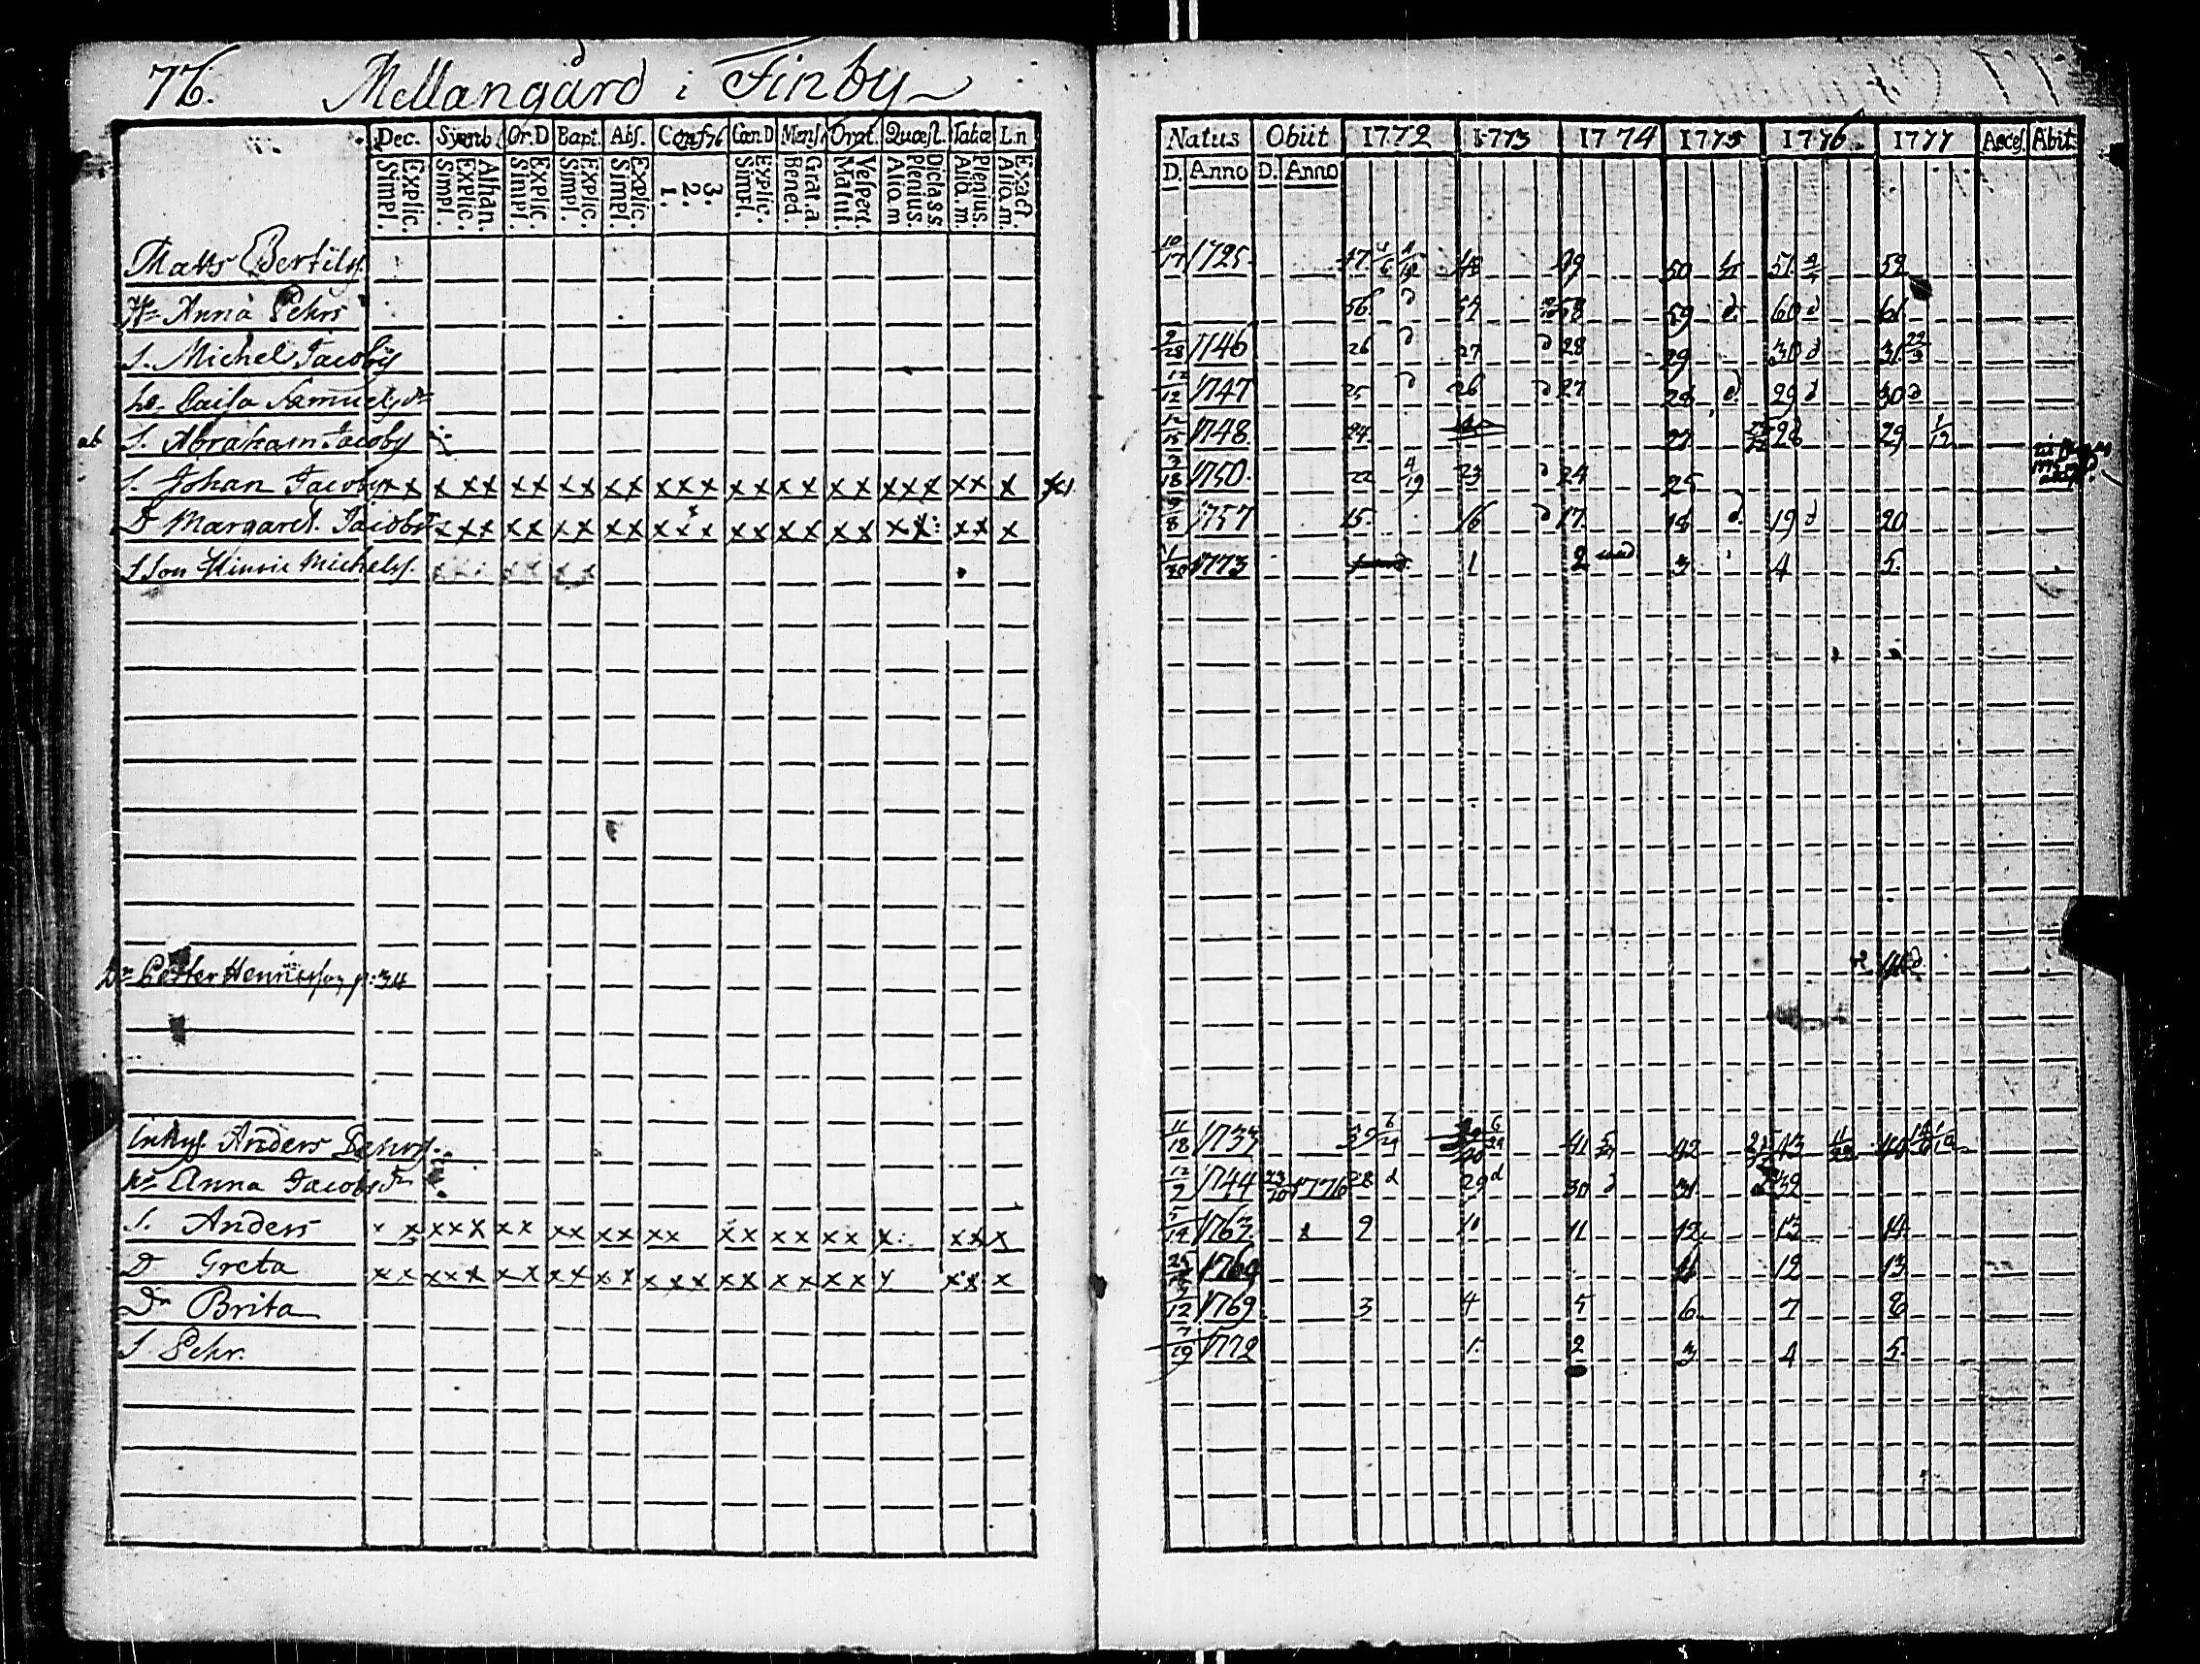 76. Mellangård i Finby
Dec. Symb Or.D Bapt. Abs. Conf76 Cœn.D Mens. Orat. Quæst. Tabæ L.n
Simpl. Explic. Simpl. Explic. Athan. Simpl. Explic Simpl. Explic. Simpl. Explic 1. 2. 3. Simpl. Explic. Bened. Grat.a. Matut. Vespert. Aliq.m Plenius. Dictass. Aliq.m. Plenius. Aliq.m. Exact.
Natus Obiit 1772 1773 1774 1775 1776 1777 Acces. Abit.
D. Anno D. Anno
Matts Bertils. 10/17 1725 47 48 49 50 51 52
Hu Anna Pehrs 56 d 57 58 59 d 60 d 61
S. Michel Jacobs 9/28 1746 26 d 27 d 28 29 30 d 31
hu. Caisa Samuelsdr 12/12 1747 25 d 26 d 27 28 d 29 d 30 d
ab S. Abraham Jacobs 12/15 1748 24 27 28 29 1/12
S. Johan Jacobs x x x x x x x x x x x x x x x x x x x x x x x x x x x 1750 22 4/19 23 d 24 25
D Margaret. Jacobs x x x x x x x x x x x x x x x x x x x x x x x 9/8 1757 15 16 d 17 18 d 19 d 20
S Son Hinric Michels. x x x x x x 1/20 1773 1 2 3 4 5
Dr Petter Henricsson p: 34
Inhys. Anders Pehrs. 11/18 1733 39 6/29 41 42 43 44
hu Anna Jacobsdr 12/9 1744 23/10 1776 28 d 29 d 30 d 31 32
S. Anders x x x x x x x x x x x x x x x x x x x x x x x x 5/14 1763 9 10 11 12 13 14
D Greta x x x x x x x x x x x x x x x x x x x x x x x x 1764 11 12 13
Dr Brita 9/12 1769 3 4 5 6 7 8
S Pehr. 7/19 1772 1 2 3 4 5